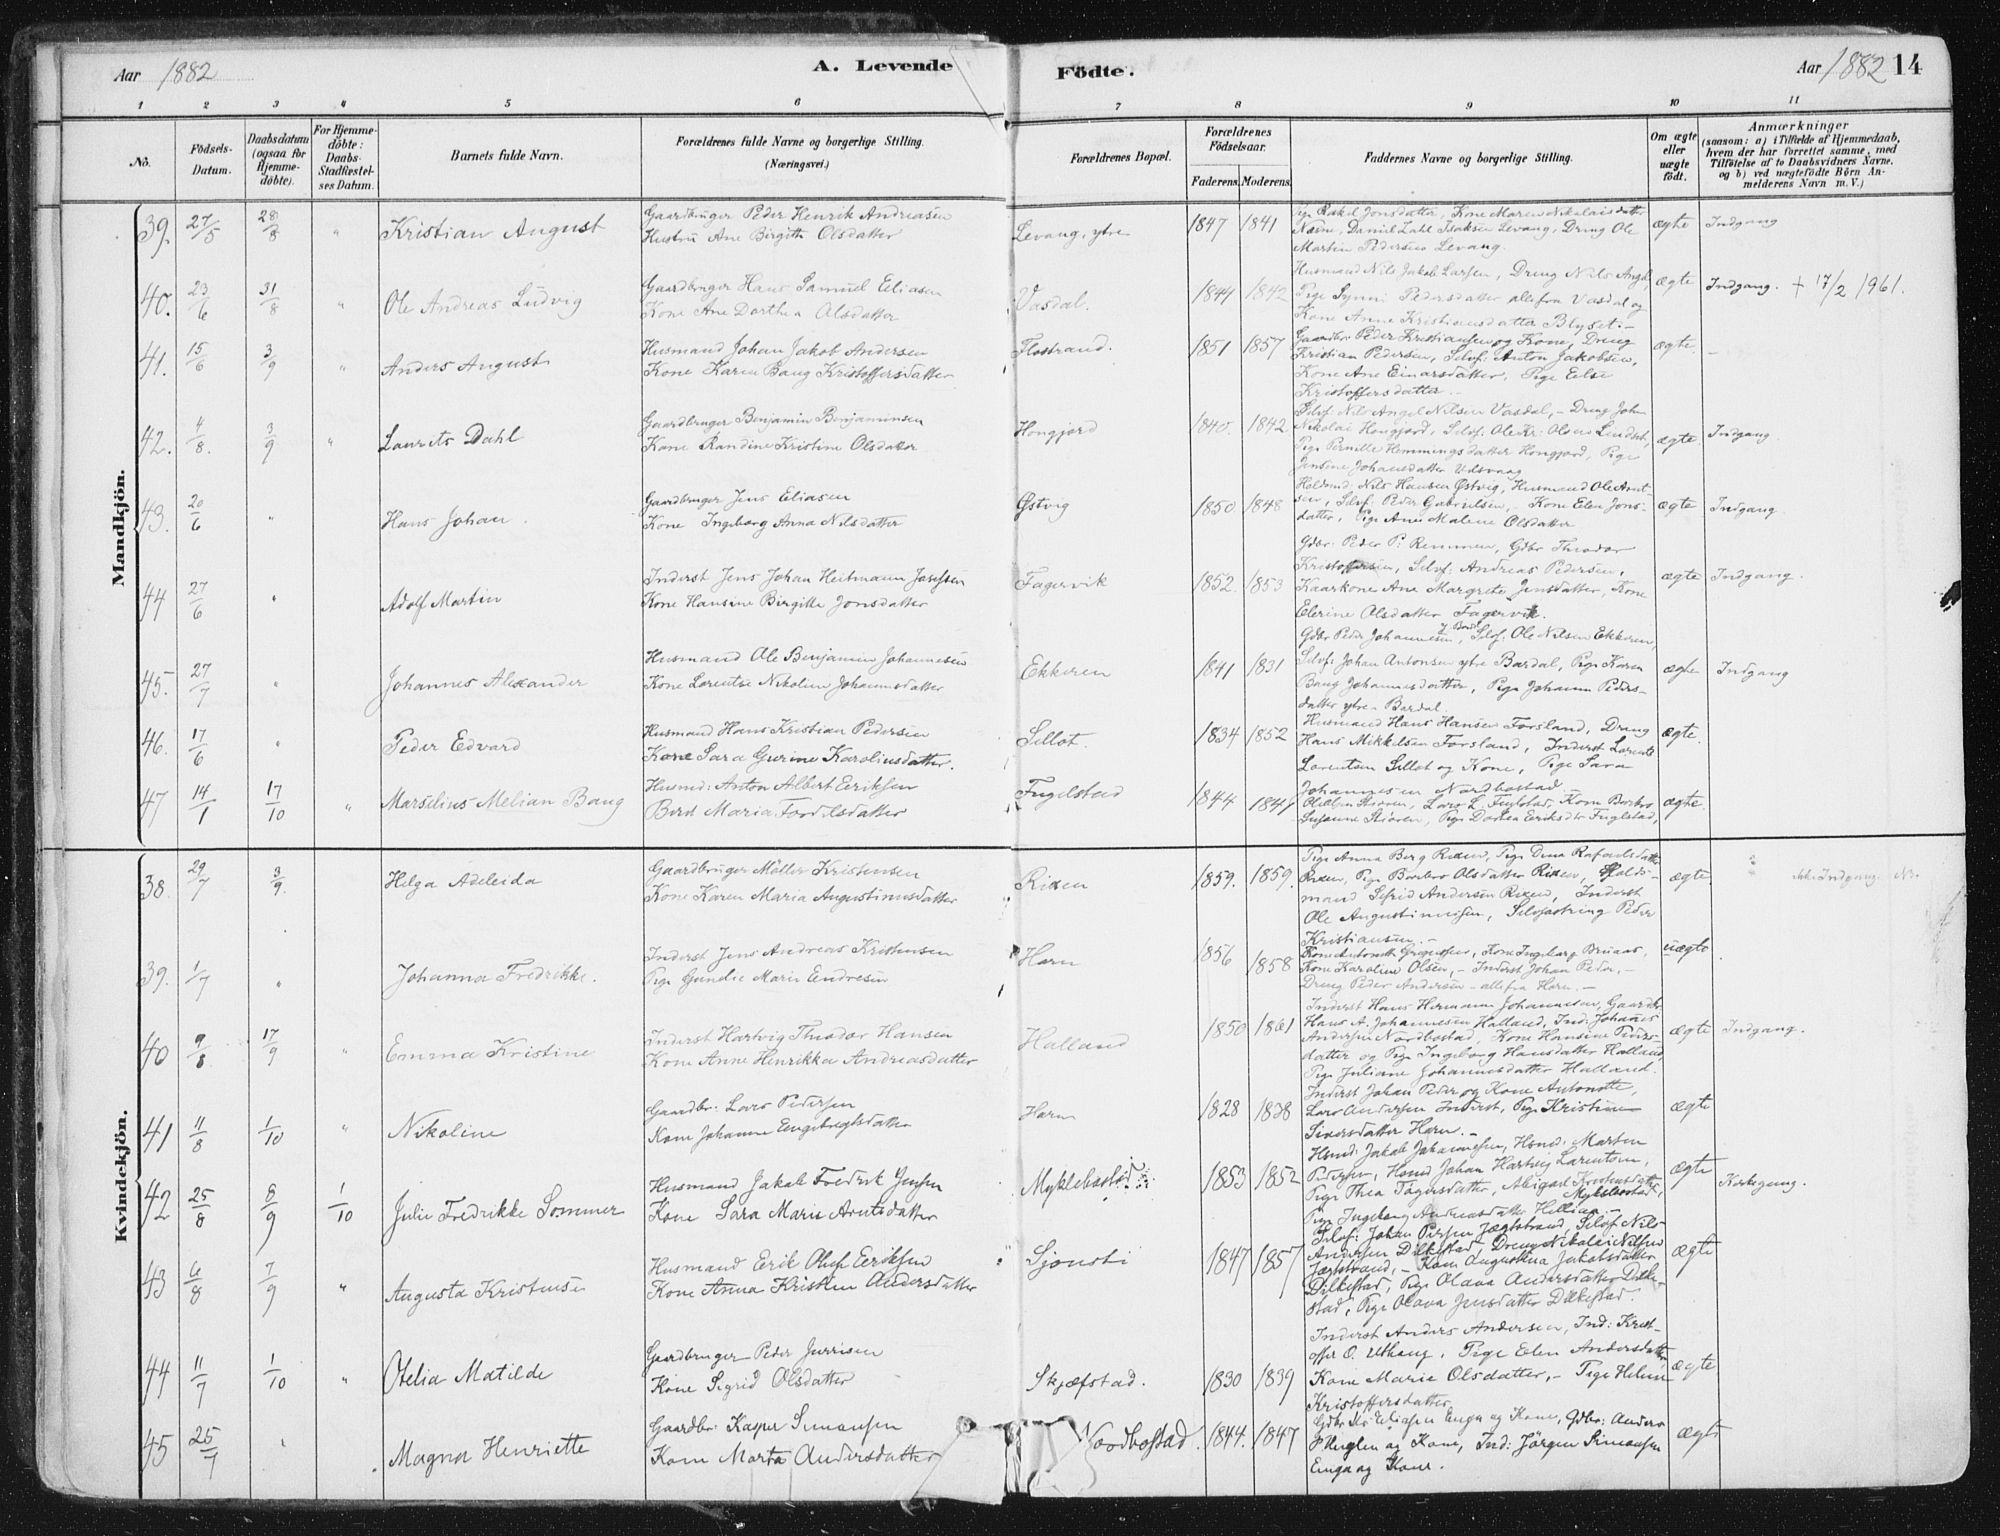 Aar 1882
A. Levende
Födte.
Aar 1882 14
1 2 3 4 5 6 7 8 9 10 11
No.
Födsels-
Datum.
Daabsdatum
(ogsaa for
Hjemme-
döbte).
For Hjemme-
döbte:
Daabs-
Stadfæstel-
ses Datum.
Barnets fulde Navn.
Forældrenes fulde Navne og borgerlige Stilling.
(Næringsvei.)
Forældrenes Bopæl.
Forældrenes
Födselsaar.
Faderens. Moderens.
Faddernes Navne og borgerlige Stilling.
Om ægte
eller
uægte
födt.
Anmærkninger
(saasom: a) i Tilfælde af Hjemmedaab,
hvem der har forrettet samme, med
Tilföielse af to Daabsvidners Navne,
og b) ved uægtefödte Börn An-
melderens Navn m. V.)
Mandkjön.
39. 27/5 28/8 " Kristian August
Gaardbruger Peder Henrik Andreasen
Hustru Ane Birgith Olsdatter
Levang, ytre 1847 1841
Pige Rakel Jonsdatter, Kone Maren Nikolaisdatter
Næsne, Daniel Zahl Isaksen Levang, Dreng Ole
Martin Pedersen Levang.
ægte Indgang
40. 23/6 31/8 " Ole Andreas Ludvig
Gaardbruger Hans Samuel Eliasen
Kone Ane Dorthea Olsdatter
Vasdal. 1844 1842
Husmand Nils Jakob Larsen, Dreng Nils Angel,
Pige Synni Pedersdatter alle fra Vasdal og
Kone Anne Kristiansdatter Blyset. -
ægte Indgang. + 17/2 1961.
41. 15/6 3/9 " Anders August
Husmand Johan Jakob Andersen
Kone Karen Baug Kristoffersdatter
Flostrand. 1851 1857
Gaardbr Peder Kristiansen og Kone, Dreng
Kristian Pedersen, Selvf: Anton Jakobsen,
Kone Ane Einarsdatter, Pige Else
Kristoffersdatter. -
ægte. -
42. 4/8. 3/9 " Laurits Dahl
Gaardbruger Benjamin Benjaminsen
Kone Randine Kristine Olsdatter
Hongjord 1840. 1842
Selvf: Nils Angel Nilsen Vasdal, - Dreng John
Nikolai Hongjord, Selvf: Ole Kr: Olsen Lindset,
Pige Pernille Hemmingsdatter Hongjord, Pige
Jensine Johansdatter Udsvaag
ægte Indgang.
43. 20/6 " Hans Johan.
Gaardbruger Jens Eliasen
Kone Ingeborg Anna Nilsdatter
Østvig 1850 1848
Nils Hansen Østvig, Husmand Ole Arnt-
sen, Selvf: Peder Gabrielsen, Kone Elen Jons-
datter, Pige Ane Malene Olsdatter
ægte Indgang.
44 27/6 " Adolf Martin
Inderst Jens Johan Heitmann Josefsen
Kone Hansine Birgitte Jonsdatter
Fagervik 1852. 1853
Gdbr: Peder P: Remmen, Gdbr Theodor
Kristoffersen, Selvf: Andreas Pedersen,
Kaarkone Ane Margrete Jensdatter, Kone
Elerine Olsdatter Fagervik.
ægte Indgang.
45. 27/7 " Johannes Alexander
Husmand Ole Benjamin Johannesen
Kone Lorentse Nikoline Johannsdatter
Ekkeren 1841 1831
Gdbr Peder Johannesen, Selvf. Ole Nilsen Ekkeren,
Selvf: Johan Antonsen ytre Bardal, Pige Karen
Baug Johannesdatter, Pige Johanna Peders-
datter ytre Bardal.
ægte Indgang
46. 17/6 " Peder Edvard
Husmand Hans Kristian Pedersen
Kone Sara Gurine Karoliusdatter.
Sellot. 1834 1852
Husmand Hans Hansen Forsland, Dreng
Hans Mikkelsen Forsland, Inderst Lorents
Lorentsen Sellot og Kone, Pige Sara
Johannesen Nordbostad
ægte.
47 14/1 17/10 " Marselius Melian Baug
Husmd: Anton Albert Eriksen
Berit Maria Tordilsdatter
Fugelstad 1844 1849
Lars L. Fuglstad, Kone Berbro
Susanne Stioren, Pige Dortea Eriksdtr Fuglstad,
ægte.
Kvindekjön.
38. 29/7 3/9. Helga Adeleida
Gaardbruger Möller Kristensen
Kone Karen Maria Augustinusdatter
Rixen 1859. 1859.
Pige Anna Berg Rixen, Pige Dina Rafaelsdatter
Rixen, Pige Berbro Olsdatter Rixen, Holds-
mand Sefrid Andersen Rixen, Inderst
Ole Augustinusen, Selvfostring Peder
Kristiansen. -
ægte ikke Indgang. N.
39. 1/7 " Johanna Fredrikke.
Inderst Jens Andreas Kristensen
Pige Gundie Marie Endresen
Horn 1856 1858
Kone Antonette Gregusen, Kone Ingeborg Brunas,
Kone Karoline Olsen, - Inderst Johan Peder, -
Dreng Peder Andersen - alle fra Horn. -
uægte.
40 9/8 17/9 " Emma Kristine
Inderst Hartvig Theodor Hansen
Kone Anne Henrikka Andreasdatter
Halland 1850 1861
Inderst Hans Hermann Johannesen, Gaardbr
Hans A. Johannesen Halland, Ind: Johannes
Andersen Nordbostad, Kone Hansine Peders-
datter og Pige Ingeborg Hansdatter Halland,
Pige Juliane Johannesdatter Halland.
ægte Indgang.
41 11/8 1/10 " Nikoline
Gaardbr: Lars Pedersen
Kone Johanne Engebregtsdatter
Horn 1828 1838
Inderst Johan Peder og Kone Antonette,
Lars Andersen Inderst, Pige Kristine
Siversdatter Horn. -
ægte
42 25/8 8/9 1/10 Julie Fredrikke Sommer
Husmand Jakob Fredrik Jensen
Kone Sara Marie Arntsdatter
Myklebostad 1853 1852
Hsmd: Jakob Johannesen, Hsmd: Marten
Pedersen, Hsmd Johan Hartvig Larentsen,
Pige Thea Tagersdatter, Abigael
Myklebostad,
Pige Ingeborg Andreasdatter Hellian. -
ægte Kirkegang.
43 6/8 7/9 " Augusta Kristense
Husmand Erik Oluf Eriksen
Kone Anna Kristien Andersdatter
Sjonsti 1847 1857
Selvf: Johan Petersen Jægtstrand, Selvf Nils
Andersen Dilkestad, Dreng Nikolai Nilsen
Jægtstrand, - Kone Augustina Jakobsdatter
Dilkestad, Pige Olava Andersdatter Dilke-
stad, Pige Olava Jensdatter Dilkestad.
ægte
44 11/7 1/10 " Otelia Matilde
Gaardbruger Peder Jurrisen
Kone Sigrid Olsdatter
Skjæfstad. 1830 1839
Inderst Anders Andersen, Ind: Krist-
offer O. Uthaug, Pige Elen Andersdatter,
Kone Marie Olsdatter, - Pige Helene
Kristoffersdatter
ægte
45 25/7 " Magna Henriette
Gaardbr: Kasper Simonsen
Kone Marta Andersdatter
Nordbostad. 1844. 1847
Gdbr Eliasen Enga og Kone, Gdbr: Anders
og Kone, Ind: Jørgen Simonsen
Enga og Kone.
ægte